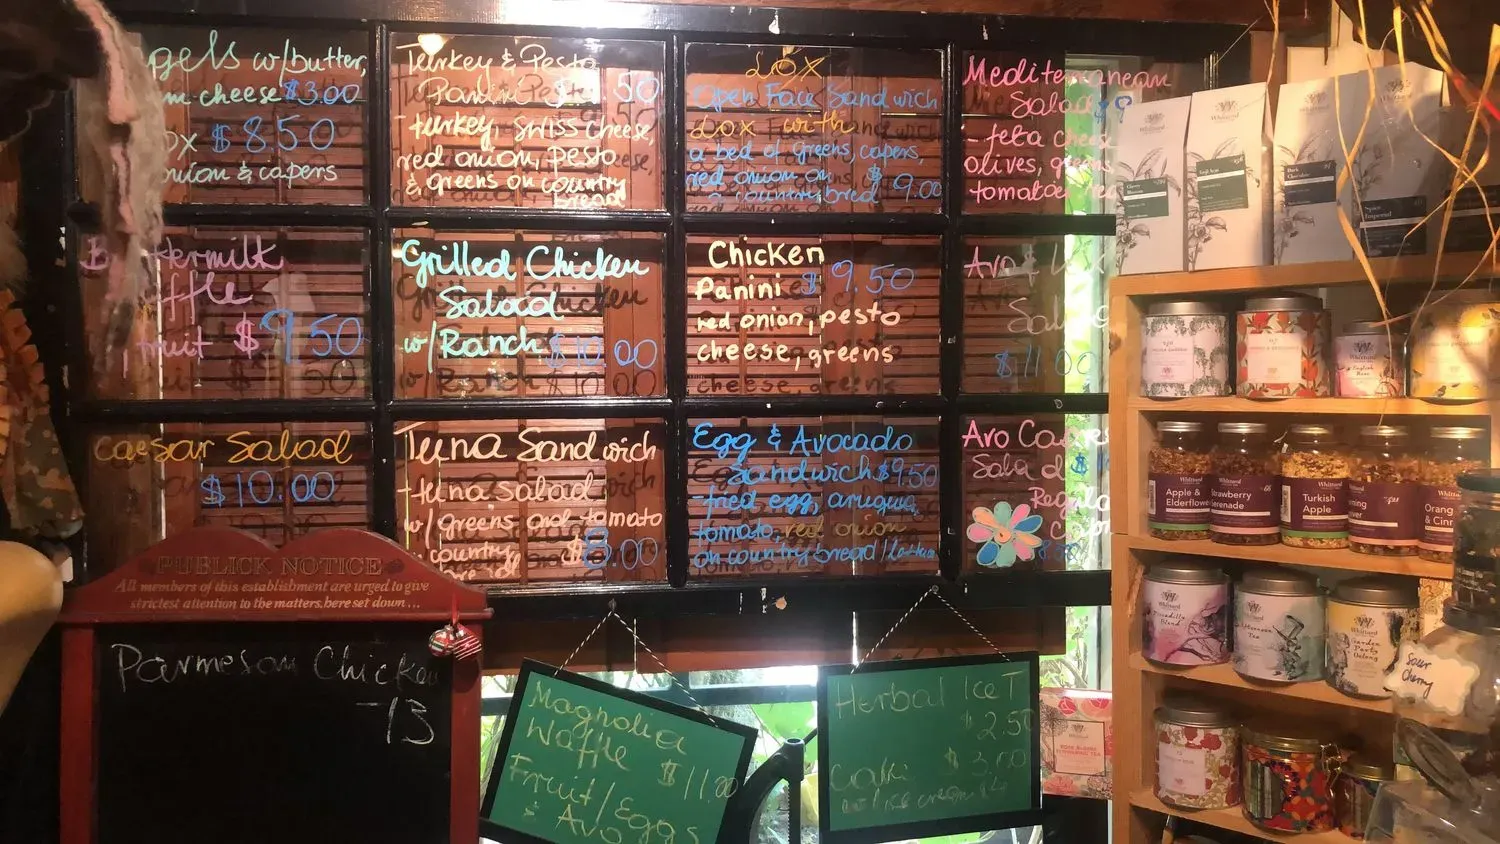 w/butter,
cheese $3.00
$8.50
onion & capers
Turkey & Pesto
Panini
- turkey, swiss cheese,
red onion, pesto
& greens on country
bread
LOX
Open Face Sandwich
Lox with
a bed of greens, capers,
red onion on
country bread $9.00
Mediterranean
Salad $9
- feta cheese
olives, greens
tomatoe
fruit $9.50
Grilled Chicken
Salad
w/Ranch $10.00
Chicken
Panini $9.50
red onion, pesto
cheese, greens
$11.00
Caesar Salad
$10.00
Tuna Sandwich
- tuna salad
w/greens and tomato
country $8.00
Egg & Avocado
Sandwich $9.50
- fried egg, arugula,
tomato, red onion
on country bread
Avo
Salad $
PUBLICK NOTICE
All members of this establishment are urged to give
strictest attention to the matters, here set down...
Parmesan Chicken
-13
Magnolia
Waffle
$11.00
Fruit/Eggs
& Avo
Herbal Ice T
$2.50
Cake $3.00
Whittard
Whittard
Whittard
Spice
Imperial
English
Rose
Whittard
Apple &
Elderflower
Whittard
Strawberry
Serenade
Whittard
Turkish
Apple
Whittard
Orange
& Cinn
Whittard
Piccadilly
Blend
Whittard
Afternoon
Tea
Whittard
Garden
Party
Oolong
Sour
Cherry
Whittard